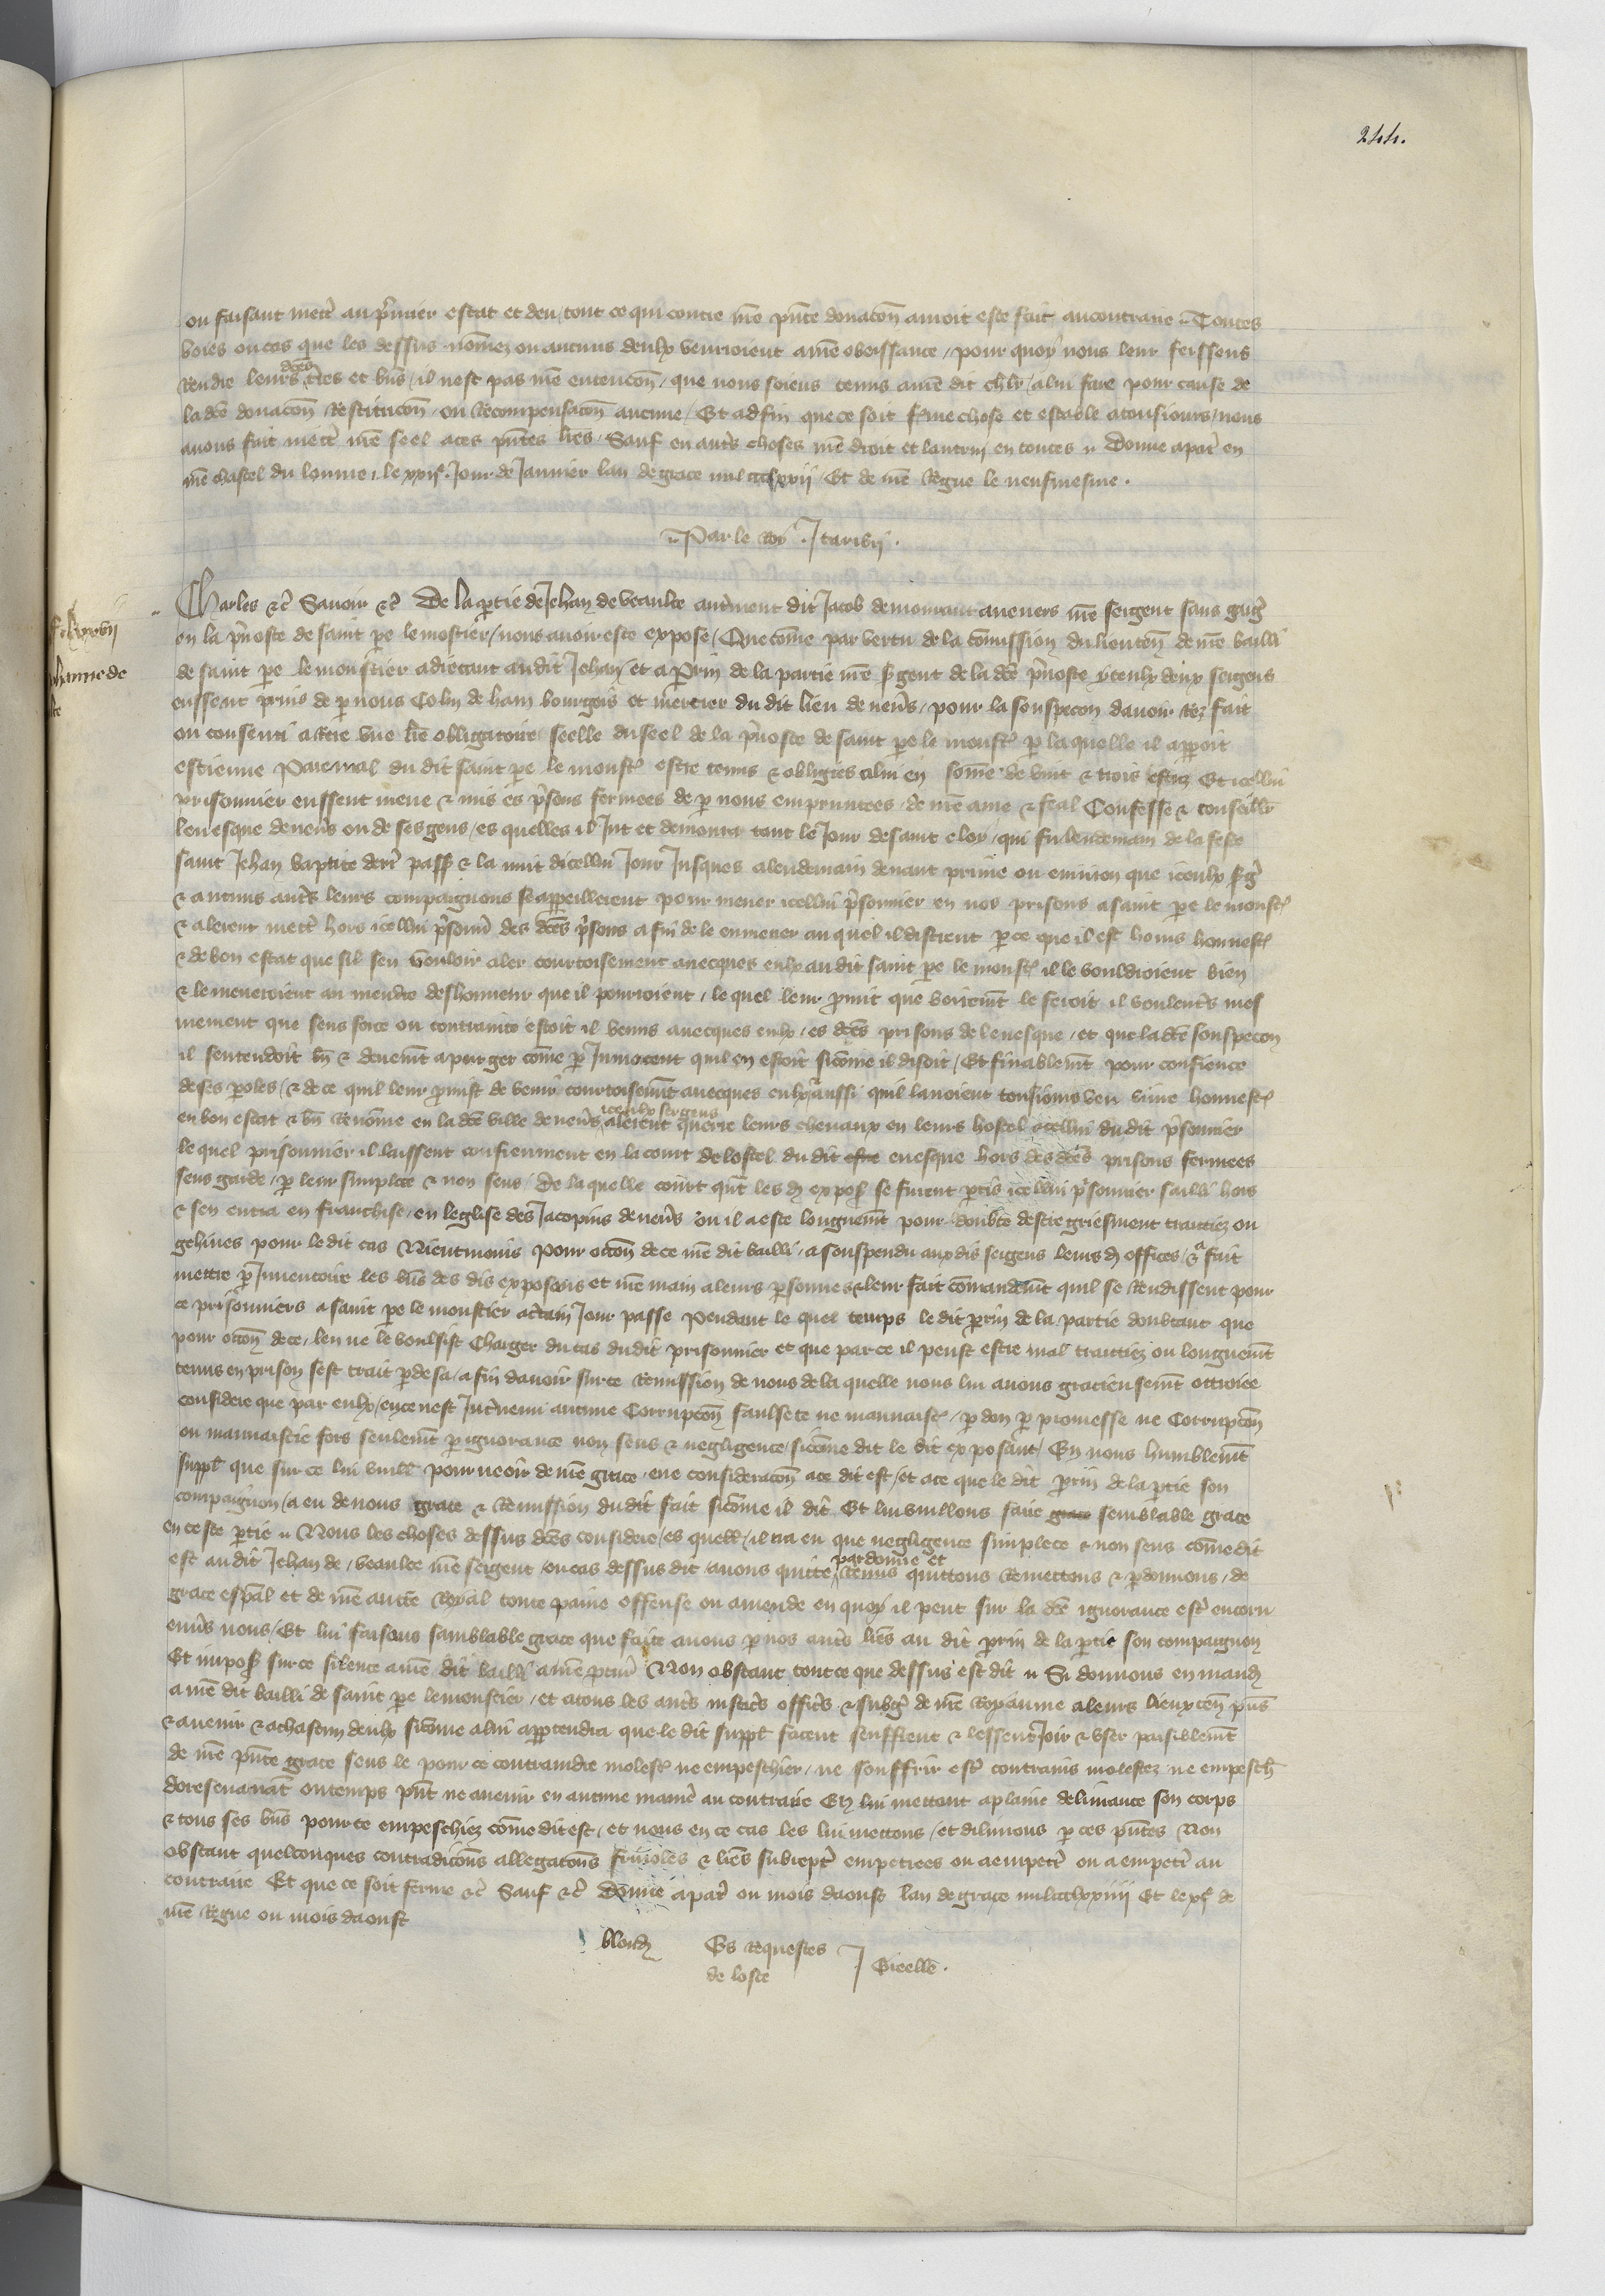 244.
ou faisant mettre au premier estat et deu tout ce qui contre nostre pnte donacon auroit este fait au contraire Toutes
voies ou cas que les dessus nommez ou aucuns deulx venroient a nre obeissance pour quoy nous leur feissens
Rendre leurs dces tres et bns il nest pas nre entencon que nous soiens tenus a nre dit chlr a lui faire pour cause de
la dce donacon Restitucon ou Recompensacon aucune Et adfin que ce soit ferme chose et estable a tousiours nous
auons fait mettre nre seel a ces pntes lres Sauf en autres choses nre droit et lautrui en toutes Donne a paris en
nre chastel du louure le xxije Jour de Januier lan de grace mil ccclxxij Et de nre Regne le neufuiesme
Par le Roy J tarisy
Charles etc Sauoir etc De la partie de Jehan de veaulce autrement dit Jacob demourant a neuers nre sergent sans gages
ou la preuoste de saint pere le mostier nous auoir este expose Que come par vertu de la comission du lieuten de nre bailli
de saint pere le moustier adrecant au dit Jehan et a Perrin de la partie nre sergent de la dce preuoste yceulx deux sergens
eussent prins de par nous Colin de ham bourgois et mercier du dit lieu de neuers pour la souspecon dauoir fait
ou consenti a estre vne lre obligatoire seelle du seel de la preuoste de saint pere le moust par laquelle il apparoit
estienne du dit saint pere le moust estre tenus et obligies a lui en some de vint et trois Et icellui
prisonnier eussent mene et mis es prisons fermees de par nous empruntees de nre ame et feal Confesse et conseiller
leuesque de neuers ou de ses gens es quelles il Jut et demoura tout le Jour de saint eloy qui fu lendemain de la feste
saint Jehan baptite derr passe et la nuit dicellui Jour Jusques a lendemain deuant prime ou enuiron que iceulx serg
et aucuns autres leurs compaignons se appareillerent pour mener icellui prisonnier en nos prisons a saint pere le moust
et alerent mettre hors icellui prisonn des dces prisons a fin de le enmener au quel il distrent par ce que il est homs honnest
et de bon estat que sil sen vouloit aler courtoisement auecques eulx au dit saint pere le moust il le vouldroient bien
et le meneroient au mendre deshonneur que il pourroient le quel leur promit que voirement le feroit il voulentrs mes
mement que sens force ou contrainte estoit il venus auecques eulx es dces prisons de leuesque et que la dce souspecon
il sentendoit bn et deuemt a purger come par Innocent quil en estoit sicome il disoit Et finablemt pour confience
de ses paroles et de ce quil leur promist de venir courtoisemt auecques eulx aussi quil lauoient tousiours veu viure honnest
en bon estat et bn Renomme en la dce ville de neuers iceulx sergens alerent querre leurs cheuaux en leurs hostel icellui du dit prisonnier
le quel prisonnier il laissent confieument en la court de lostel du dit euesque hors des dces prisons fermees
sens garde par leur simplece et non sens De laquelle court qnt les d expos se furent partis icellui prisonnier sailli hors
et sen entra en franchise en leglise des Jacopins de neuers ou il a este longuemt pour doubte destre griesment traittiez ou
gehines pour le dit cas Nientmoins pour occon de ce nre dit bailli a souspendu aux dis sergens leurs d offices et a fait
mettre par Inuentoire les bns des dis exposens et nre main a leurs personnes et leur fait comandemt quil se Rendissent pour
ce prisonniers a saint pere le moustier a certain Jour passe Pendant le quel temps le dit perrin de la partie doubtant que
pour occon de ce len ne le voulsist Charger du cas du dit prisonnier et que par ce il peust estre mal traittiez ou longuemt
tenus en prison sest trait par de sa a fin dauoir sur ce Remission de nous de la quelle nous lui auons gracieusemt ottroiee
considere que par eulx en ce nest Interuenu aucune Corrupcon faulsete ne mauuaist par don par promesse ne Corrupcon
ou mauuaistie fors seulemt par ignorance non sens et negligence sicome dit le dit exposant En nous humblemt
suppl que sur ce lui vuill pourueoir de nre grace eue consideracon a ce dit est et a ce que le dit perrin de la partie son
compaignon a eu de nous grace et Remission du dit fait sicome il dit Et lui vuillons faire semblable grace
en ceste partie Nous les choses dessus dces considere es quell il na eu que negligence simplece et non sens come dit
est au dit Jehan de veaulce nre sergent ou cas dessus dit auons quitte pardonne et Remis quittons Remettons et pardonnons de
grace espal et de nre autte Royal toute paine offense ou amende en quoy il peut sur la dce ignorance estre encouru
enuers nous Et lui faisons samblable grace que faite auons par nos autres lres au dit perrin de la partie son compaignon
Et impos sur ce silence a nre dit bailli a nre procur Non obstant tout ce que dessus est dit Si donnons en mand
a nre dit bailli de saint pere le moustier et a tous les autres justic offic et subg de nre Royaume a leurs lieuxten pns
et auenir et a chascun deulx sicome a lui appartendra que le dit suppl facent seuffrent et lessent Joir et vser paisiblemt
de nre pnte grace sens le pour ce contraindre molest ne empeschier ne souffrir estre contrains molestez ne empesch
doresenauant ou temps pnt ne auenir en aucune maniere au contraire En lui mettant a plaine deliurance son corps
et tous ses bns pour ce empeschiez come dit est et nous en ce cas les lui mettons et deliurons par ces pntes Non
obstant quelconques contradicons allegacons friuoles et lres subrept empetrees ou a empetr ou a empetr au
contraire Et que ce soit ferme etc Sauf etc Donne a paris ou mois daoust lan de grace mil ccclxxiiij Et le xje de
nre Regne ou mois daoust
Es Requestes
de lostel